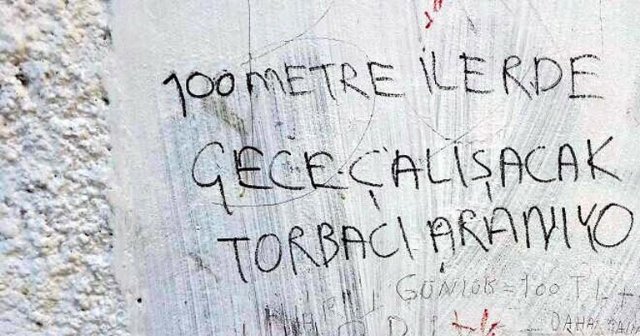 100 METRE İLERDE
GECE ÇALIŞACAK
TORBACI ARANIYO
GÜNLÜK = 100 TL
DAHA